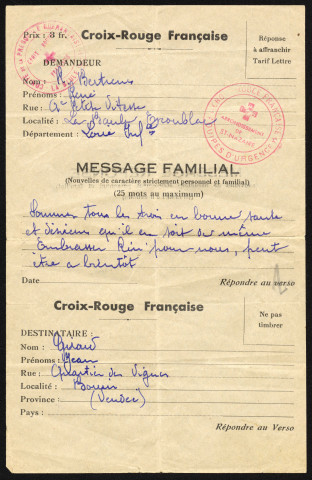 Prix : 3 fr.
Croix-Rouge Française
Réponse
à affranchir
Tarif Lettre
DEMANDEUR
Nom :
Prénoms : René
Rue :
Localité : La Baule
Département : Loire Infre
MESSAGE FAMILIAL
(Nouvelles de caractère strictement personnel et familial)
(25 mots au maximum)
Sommes tous les trois en bonne santé
et désirons qu'il en soit de même
Embrasser pour nous, peut
être a bientôt
Date
Répondre au verso
Croix-Rouge Française
Ne pas
timbrer
DESTINATAIRE :
Nom :
Prénoms : Jean
Rue : Quartier des Vignes
Localité :
Province : (Vendée)
Pays :
Répondre au Verso